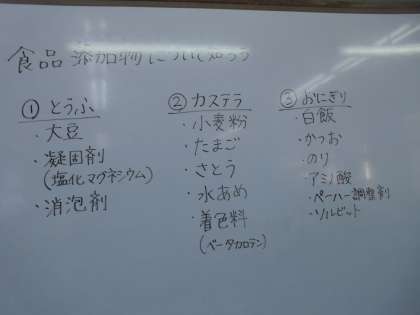 食品添加物について知ろう
① とうふ
・大豆
・凝固剤
(塩化マグネシウム)
・消泡剤
② カステラ
・小麦粉
・たまご
・さとう
・水あめ
・着色料
(ベータカロテン)
③ おにぎり
・白飯
・かつお
・のり
・アミノ酸
・ペーハー調整剤
・ソルビット